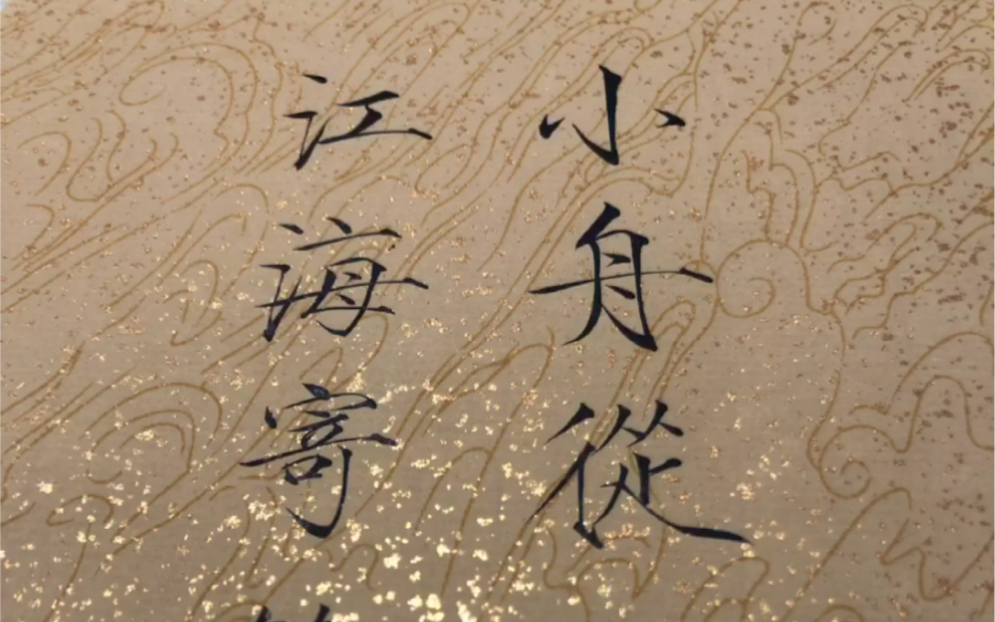 小舟從
江海寄